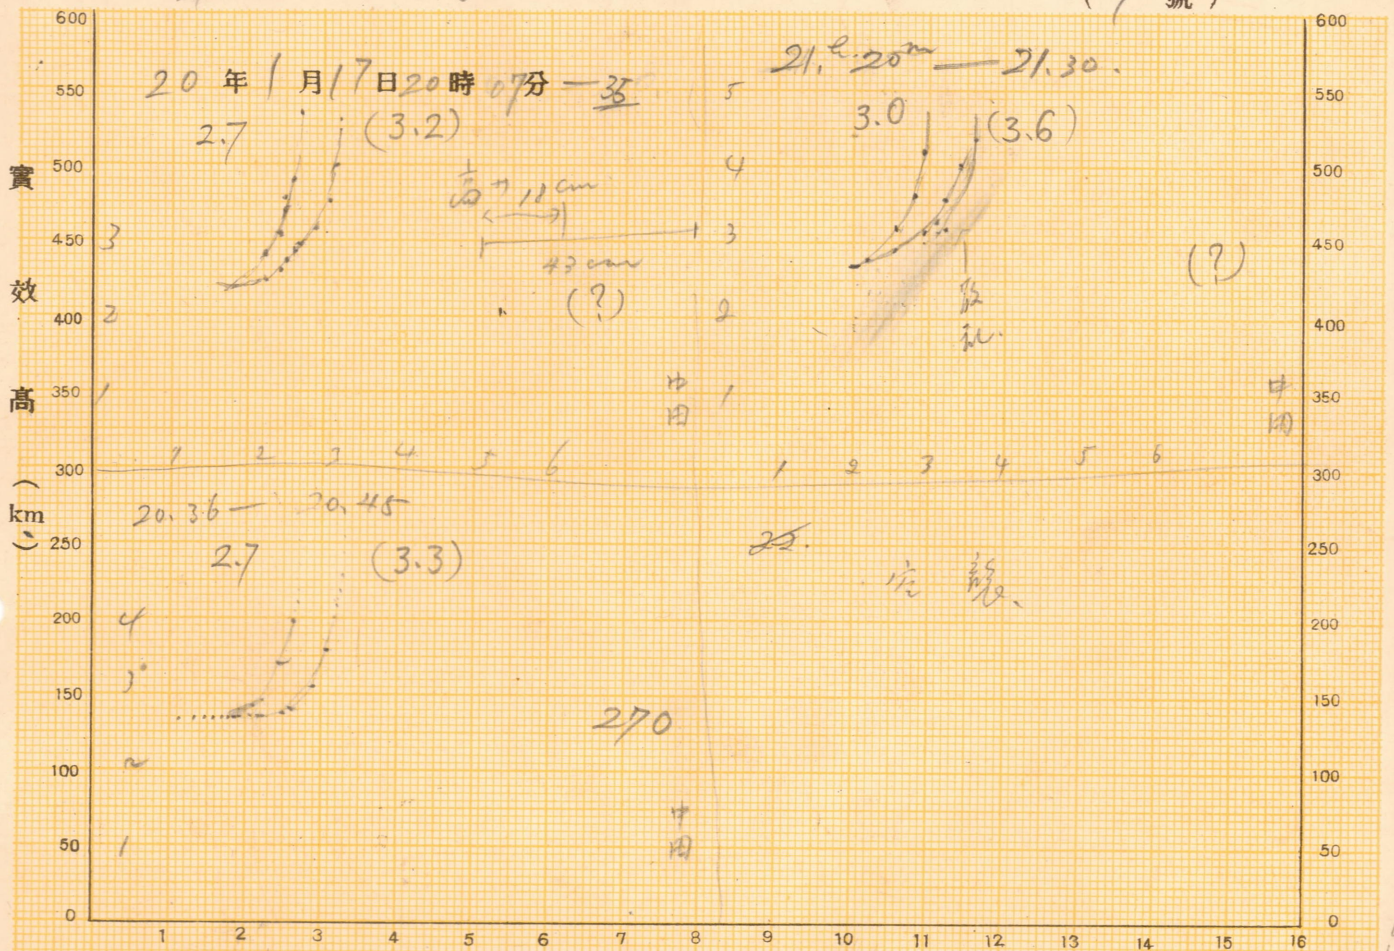 號)
20年1月17日20時07分—35
2.7 (3.2)
18cm
43cm
(?)
21.h 20m — 21.30.
3.0 (3.6)
散乱
(?)
中田
中田
5
4
3
2
1
3
2
1
1 2 3 4 5 6
1 2 3 4 5 6
20.36 — 20.45
2.7 (3.3)
4
3
2
1
270
中田
22.
實效高(km)
600
550
500
450
400
350
300
250
200
150
100
50
0
600
550
500
450
400
350
300
250
200
150
100
50
0
1 2 3 4 5 6 7 8 9 10 11 12 13 14 15 16